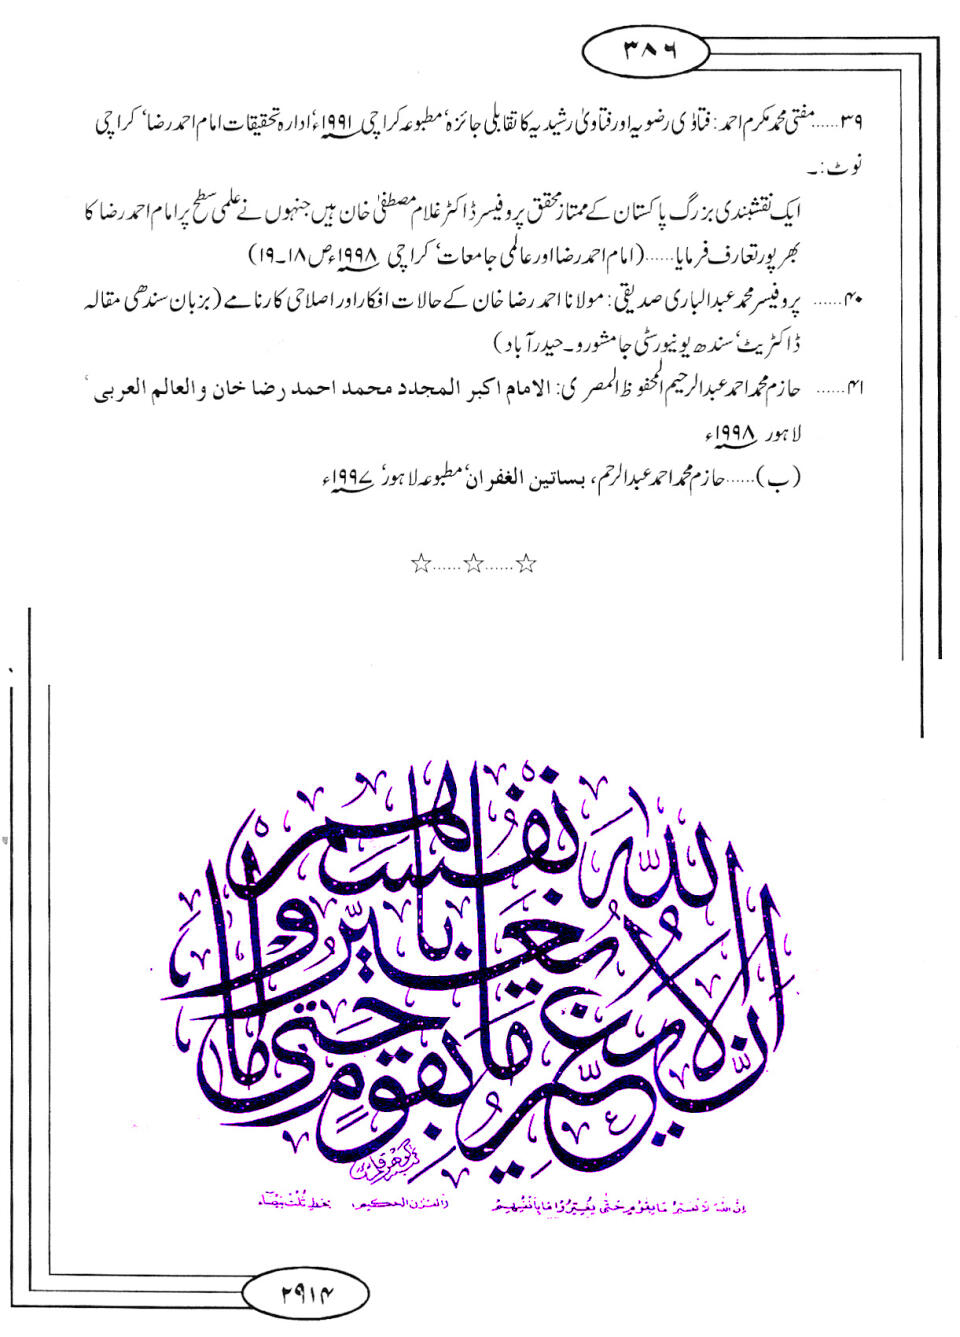 ۳۸۶
۳۹......مفتی محمد مکرم احمد: فتاوٰی رضویہ اور فتاویٰ رشیدیہ کا تقابلی جائزہ‘ مطبوعہ کراچی ۱۹۹۱ء‘ ادارہ تحقیقات امام احمد رضا‘ کراچی
نوٹ:۔
ایک نقشبندی بزرگ پاکستان کے ممتاز محقق پروفیسر ڈاکٹر غلام مصطفیٰ خان ہیں جنہوں نے علمی سطح پر امام احمد رضا کا
بھرپور تعارف فرمایا......(امام احمد رضا اور عالمی جامعات‘ کراچی ۱۹۹۸ء ص ۱۸۔۱۹)
۴۰...... پروفیسر محمد عبدالباری صدیقی: مولانا احمد رضا خان کے حالات افکار اور اصلاحی کارنامے (بزبان سندھی مقالہ
ڈاکٹریٹ‘ سندھ یونیورسٹی جامشورو۔حیدرآباد)
۴۱...... حازم محمد احمد عبدالرحیم المحفوظ المصری: الامام اکبر المجدد محمد احمد رضا خان والعالم العربی‘
لاہور ۱۹۹۸ء
(ب)......حازم محمد احمد عبدالرحم، بساتین الغفران‘ مطبوعہ لاہور‘ ۱۹۹۷ء
☆......☆......☆
ان الله لا يغير ما بقوم حتى يغيروا ما بأنفسهم
إن الله لا يغير ما بقوم حتى يغيروا ما بأنفسهم القرآن الحكيم، بخط ثلث بيضاء
۲۹۱۴